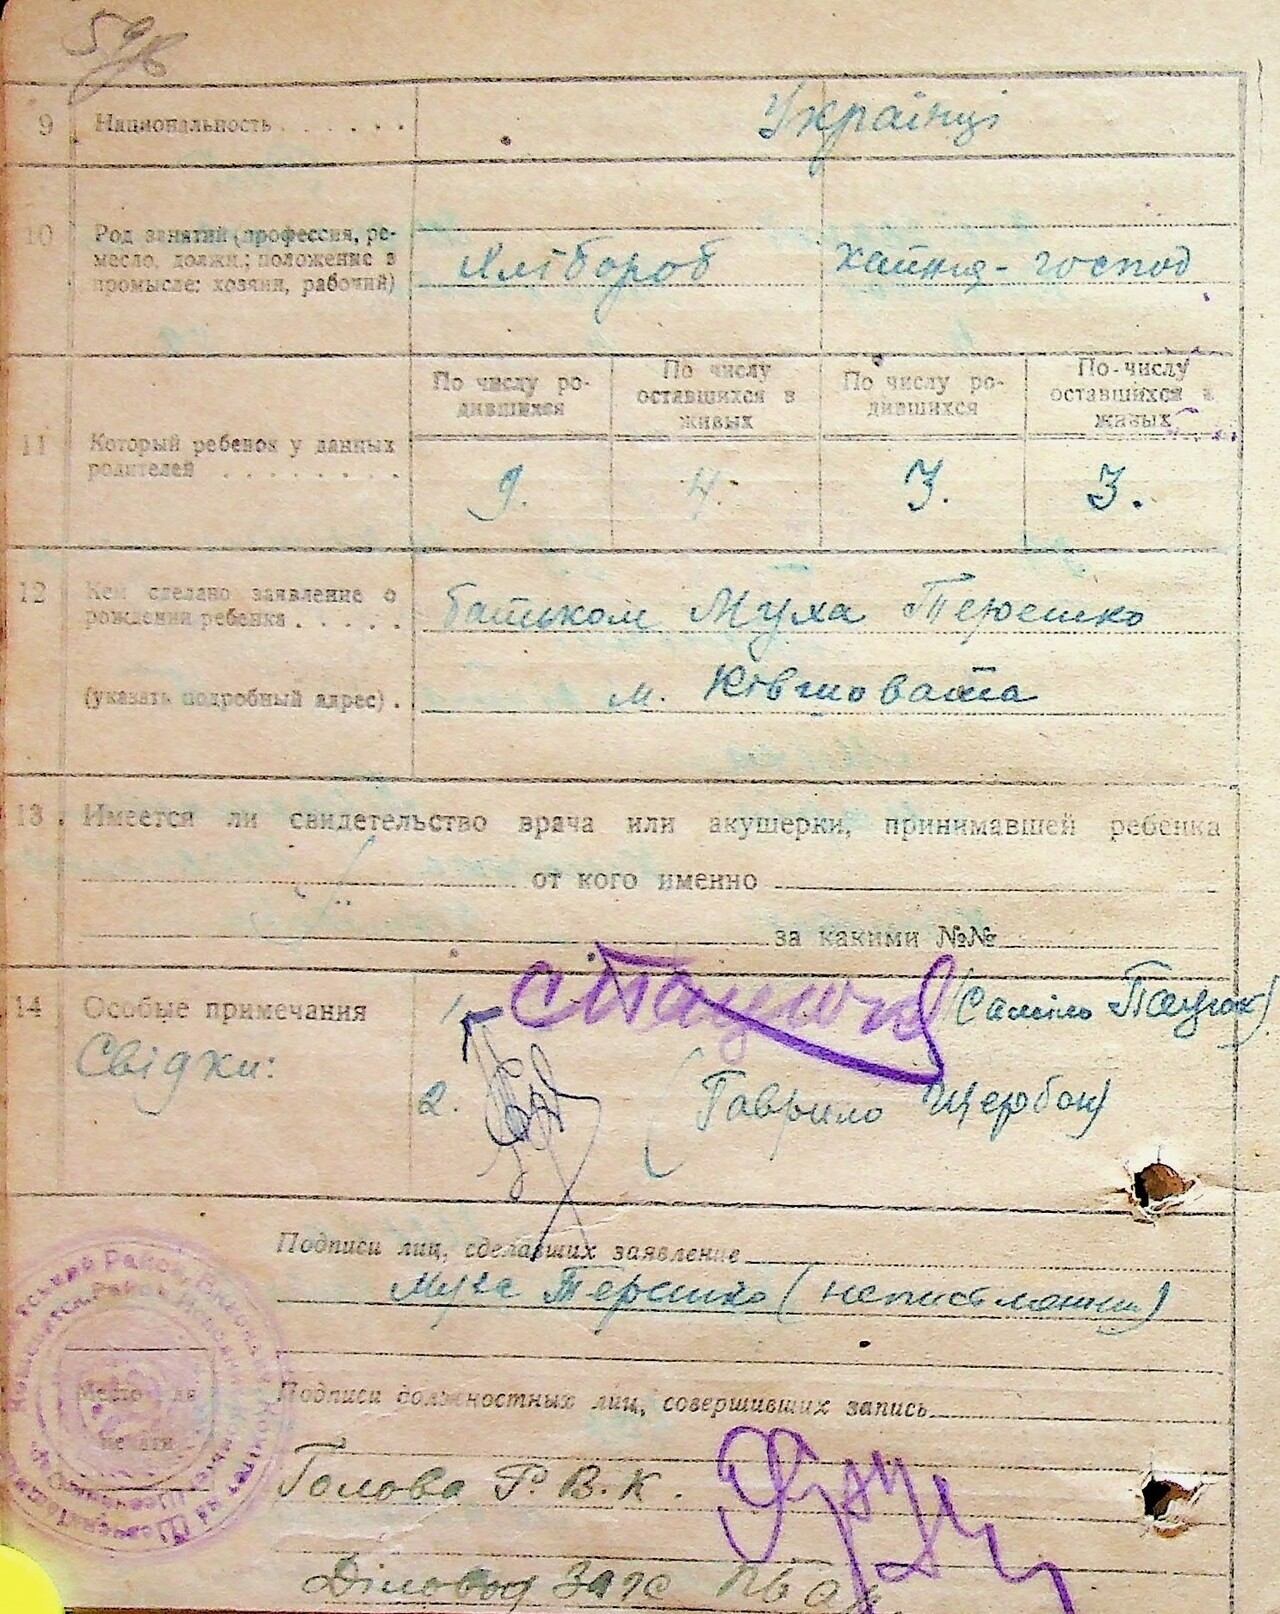 59в
9 Национальность . . . . . . Українці
10 Род занятий (профессия, ре-
месло, должн.; положение в
промысле: хозяин, рабочий)
Хлібороб хатня-господ
11 Который ребенок у данных
родителей . . . . . . . .
По числу ро-
дившихся
По числу
оставшихся в
живых
По числу ро-
дившихся
По числу
оставшихся в
живых
9. 4. 3. 3.
12 Кем сделано заявление о
рождении ребенка . . . . .
батьком Муха Терешко
(указать подробный адрес) . м. Ковшовата
13 Имеется ли свидетельство врача или акушерки, принимавшей ребенка
от кого именно
за какими №№
14 Особые примечания
Свідки:
1. (Саміло Пацюк)
2. (Гаврило Щербак)
Подписи лиц, сделавших заявление
Муха Терешко (неписьменний)
Место для
печати
Подписи должностных лиц, совершивших запись
Голова Р.В.К.
Діловод Загс